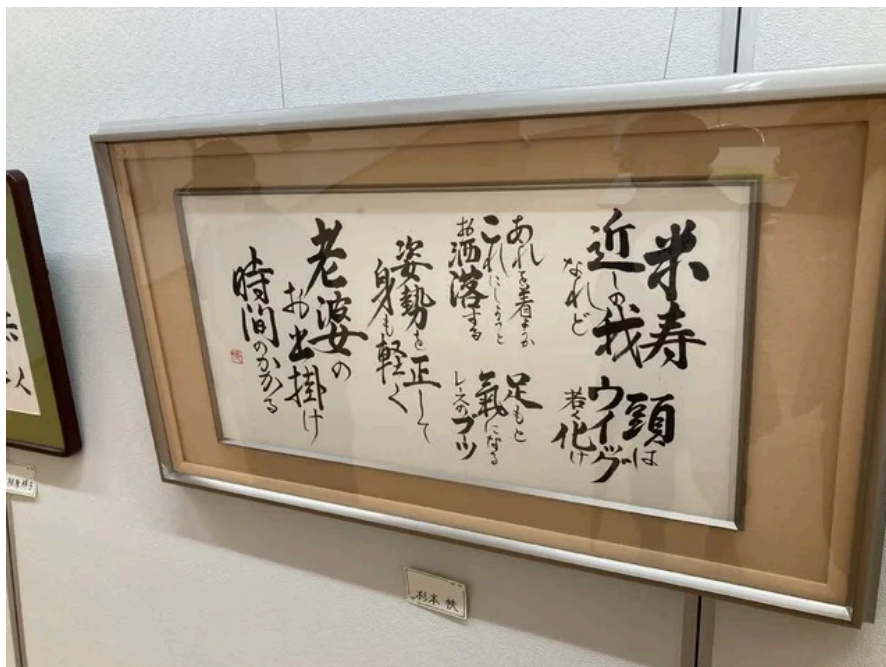 米寿
近しの我
なれど
頭は
ウイグ
若く化け
あれを着ようか
これにしようと
お洒落する
足もと
氣になる
レースのブーツ
姿勢を正して
身も軽く
老婆の
お出掛け
時間のかかる
杉本